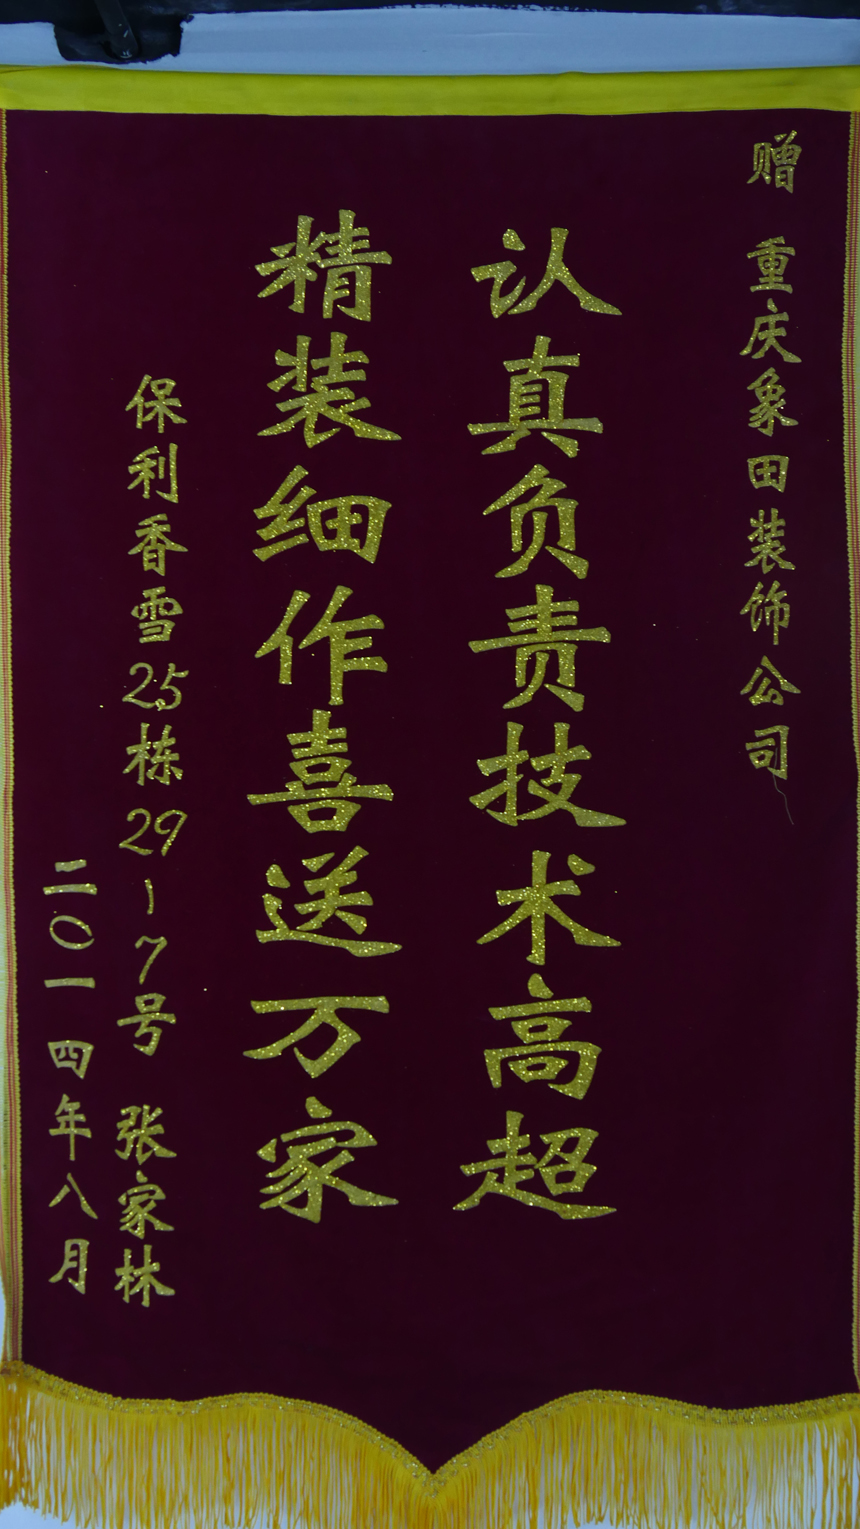 赠 重庆象田装饰公司
认真负责技术高超
精装细作喜送万家
保利香雪25栋29-7号 张家林
二〇一四年八月